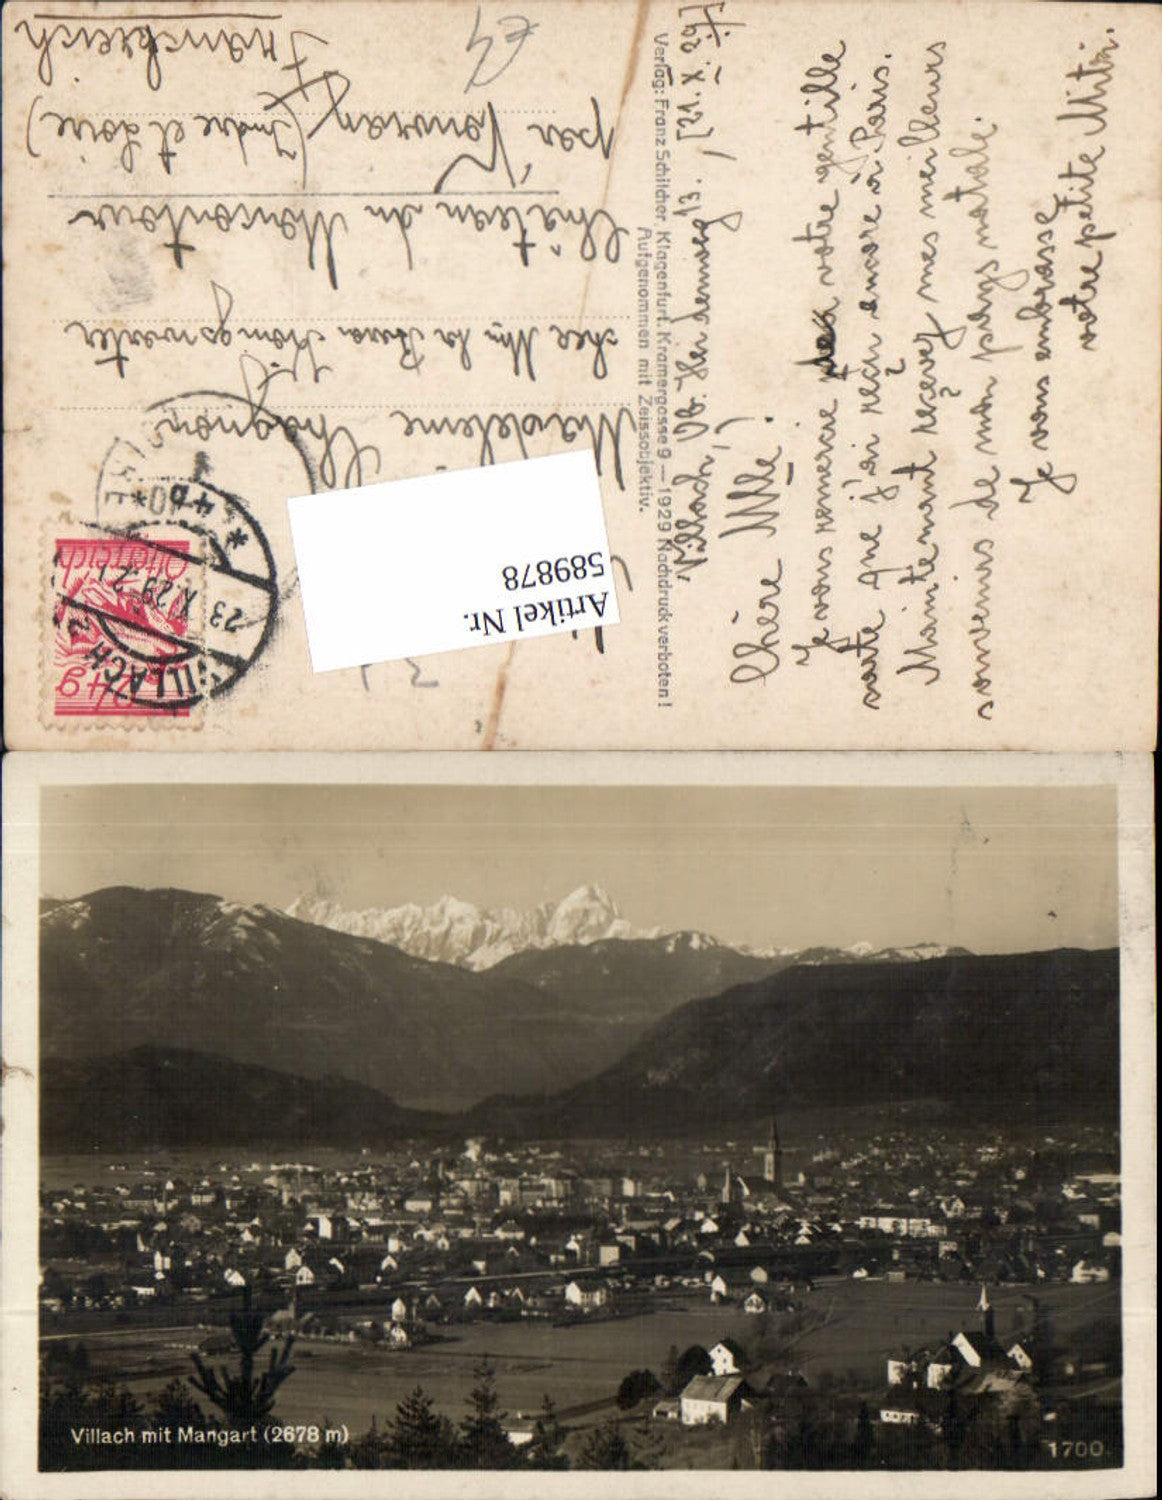 Villach, Ob. Heidenweg 13. / [21. X. 29]
Chère Mlle!
Je vous remercie pour votre gentille
carte que j'ai reçu encore à Paris.
Maintenant recevez mes meilleurs
souvenirs de mon pays natale.
Je vous embrasse
votre petite Mitzi.
Verlag: Franz Schilcher, Klagenfurt, Kramergasse 9 — 1929 Nachdruck verboten!
Aufgenommen mit Zeissobjektiv.
Madeleine Chagnon
chez Mme la
Château du
par (Indre et Loire)
Frankreich
24 g
Österreich
VILLACH 2
23 X 29 21
* 4b 00 *
Artikel Nr.
589878
Villach mit Mangart (2678 m)
1700.